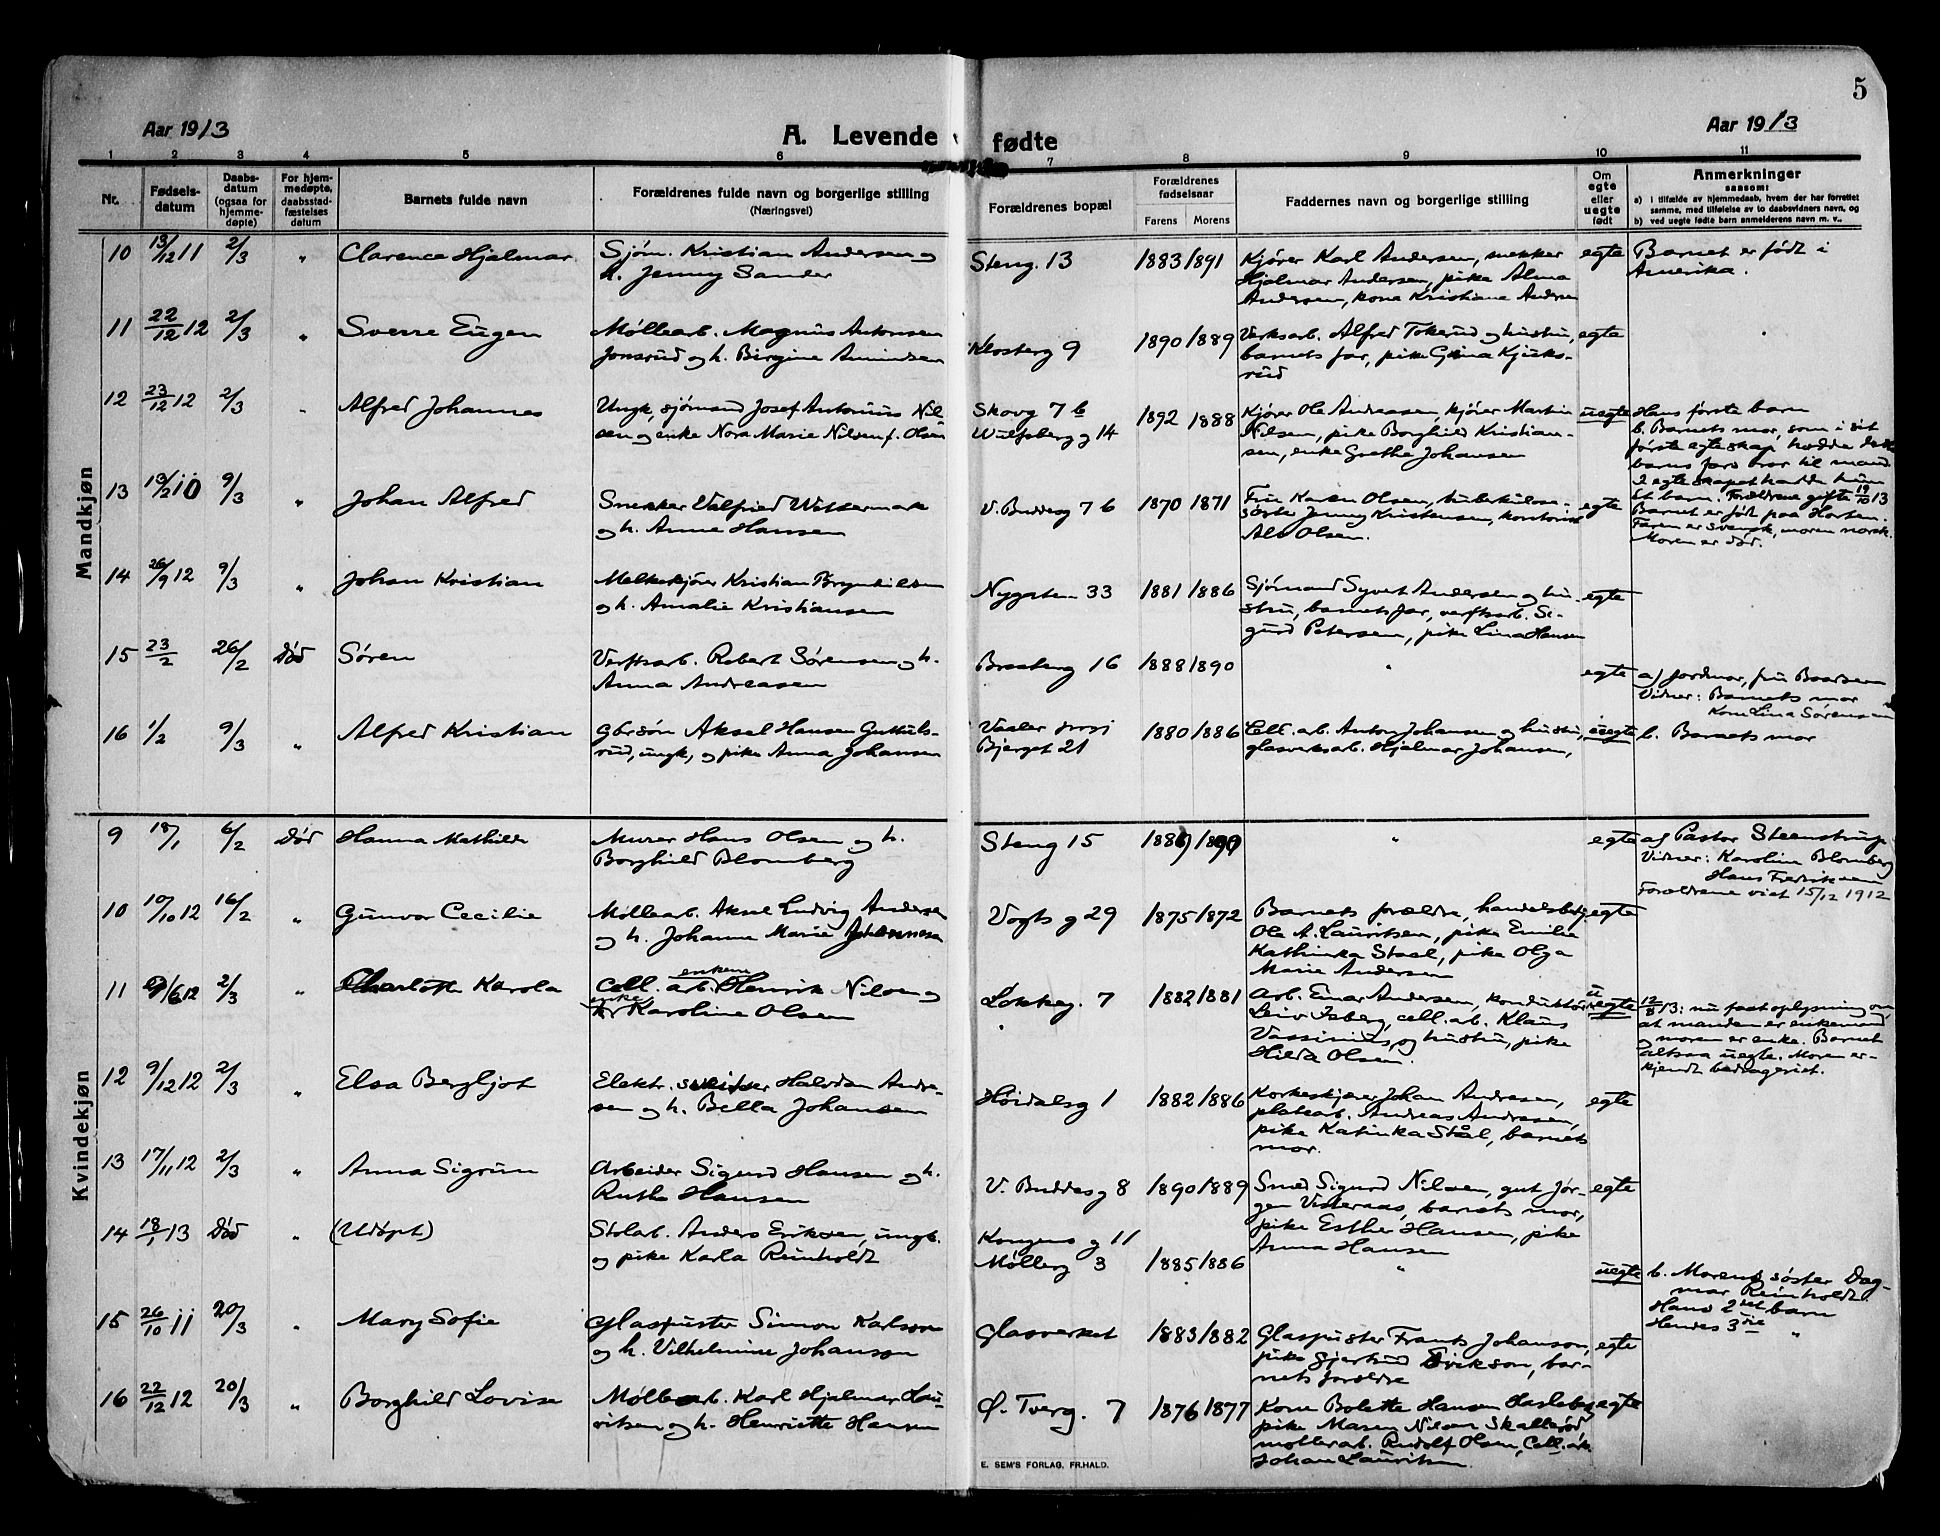 5
Aar 1913
A. Levende fødte
Aar 1913
1 2 3 4 5 6 7 8 9 10 11
Nr.
Fødsels-
datum
Daabs-
datum
(ogsaa for
hjemme-
døpte)
For hjem-
medøpte,
daabsstad-
fæstelses
datum
Barnets fulde navn
Forældrenes fulde navn og borgerlige stilling
(Næringsvei)
Forældrenes bopæl
Forældrenes
fødselsaar
Farens Morens
Faddernes navn og borgerlige stilling
Om
egte
eller
uegte
født
Anmerkninger
saasom:
a) i tilfælde av hjemmedaab, hvem der har forrettet
samme, med tilføielse av to daabsvidners navn, og
b) ved uegte fødte barn anmelderens navn m. v.,
Mandkjøn
10 13/12 11 2/3 " Clarence Hjalmar
Sjøm. Kristian Andersen og
h. Jenny Sander
Steng. 13 1883 1891
Kjører Karl Andersen, snekker
Hjalmar Andersen, pike Alma
Andersen, kone Kristiane Andersen
egte
Barnet er født i
Amerika.
11 22/12 12 2/3 " Sverre Eugen
Møllearb. Magnus Antonsen
Jonsrud og h. Birgine Amundsen
Klosterg 9 1890 1889
Verksarb. Alfred Tokerud og hustru,
barnets far, pike Gina Kjuks-
rud
egte
12 23/12 12 2/3 " Alfred Johannes
Ungk, sjømand Josef Antonius Nil-
sen og enke Nora Marie Nilsen f. Olsen
Skovg 7 b
Wulfsberg g 14
1892 1888
Kjører Ole Andreasen, kjører Martin
Nilsen, pike Borghild Kristian-
sen, enke Grethe Johansen
uegte
Hans første barn
b. Barnets mor, som i sit
første egteskap hadde dette
barns fars bror til mand
I egteskapet hadde hun
et barn. Forældrene gifte 19/10 13
13 13/2 10 9/3 " Johan Alfred
Snekker Valfried Wettermark
og h. Anna Hansen
V. Buddesg 7 b 1870 1871
Fru Karen Olsen, tuberkulose-
søster Jenny Kristensen, kontorist
Alv Olsen.
egte
Barnet er født paa Horten.
Faren er svensk, moren norsk.
Moren er død.
14 26/9 12 9/3 " Johan Kristian
Melkekjører Kristian Brynhildsen
og h. Amalie Kristiansen
Nygsten 33 1881 1886
Sjømand Syvert Andersen og hu-
stru, barnets far, verftsarb. Si-
gurd Petersen, pike Lina Hansen
egte
15 23/2 26/2 Død Søren
Verftsarb. Robert Sørensen og h.
Anna Andreasen
Bratberg 16 1888 1890 "
egte
a) Jordmor, fru Baarsrud
Vidner: Barnets mor
Kone Lina Sørensen
16 1/2 9/3 " Alfred Kristian
Gbrsøn Aksel Hansen Guttuls-
rud, ungk, og pike Anna Johansen
Vaaler
Bjerget 21
1880 1886
Cell. arb. Anton Johansen og hustru,
glasverksarb. Hjalmar Johansen,
uegte
b. Barnets mor
Kvindekjøn
9 18/1 6/2 Død Hanna Mathilde
Murer Hans Olsen og h.
Borghild Blomberg
Steng 15 1889 1890 "
egte
a) Pastor Steenstrup
Vidner: Karoline Blomberg
Hans Fredriksen
Forældrene viet 15/12 1912
10 10/10 12 16/2 " Gunvor Cecilie
Møllearb. Aksel Ludvig Andersen
og h. Johanne Marie Johannesen
Vogts g 29 1875 1872
Barnets forældre, handelsbetj.
Ole A. Lauritsen, pike Emilie
Kathinka Staal, pike Olga
Marie Andersen
egte
11 9/6 12 2/3 " Charlotte Karola
Cell. arb. enkem Henrik Nilsen og
enke Karoline Olsen
Løkkeg. 7 1882 1881
Arb. Einar Andersen, konduktør
Leiv Isberg, cell. arb. Klaus
Vassinius og hustru, pike
Hilda Olsen.
uegte
12/8 13: nu faat oplysning om
at manden er enkemand
og moren er enke. Barnet
altsaa uegte. Moren er-
kjendt bedrageriet.
12 9/12 12 2/3 " Elsa Bergljot
Elektr. snekker Halvdan Andre-
sen og h. Bella Johansen
Høidalsg 1 1882 1886
Korkeskjærer Johan Andresen,
platearb. Andreas Andresen,
pike Katinka Stål, barnets
mor.
egte
13 17/11 12 2/3 " Anna Sigrun
Arbeider Sigurd Hansen og h.
Ruth Hansen
V. Buddesg 8 1890 1889
Smed Sigurd Nilsen, gut Jør-
gen Vesteraas, barnets mor,
pike Esther Hansen, pike
Anna Hansen
egte
14 18/1 13 Død " (Udøpt)
Stolarb. Anders Eriksen, ungk.
og pike Karla Reinholdt
Kongens g 11
Møllerg 3
1885 1886 "
uegte
b. Morens søster Dag-
mar Reinholdt.
Hans 2det barn
Hendes 3die "
15 26/10 11 20/3 " Mary Sofie
Glaspuster Simon Karlsson
og h. Vilhelmine Johansson
Glasverket 1883 1882
Glaspuster Frants Johanson,
pike Gjertrud Erikson, bar-
nets forældre
egte
16 22/12 12 20/3 " Borghild Lovise
Møllearb. Karl Hjalmar Lau-
ritsen og h. Henriette Hansen
Ø. Tverg. 7 1876 1877
Kone Bolette Hansen Hasleberg
pike Maren Nilsen Skallerød
møllerarb. Rudolf Olsen, Cell. arb.
Johan Lauritsen.
egte
E. SEM'S FORLAG, FR.HALD.